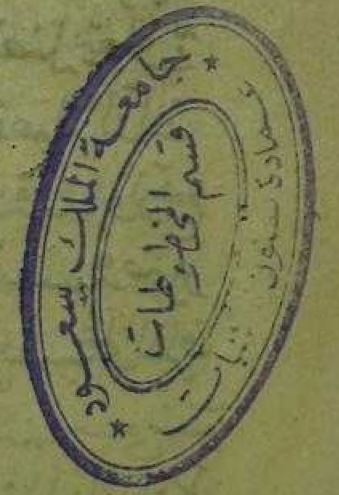 جامعة الملك سعود
قسم المخطوطات
عمادة شؤون